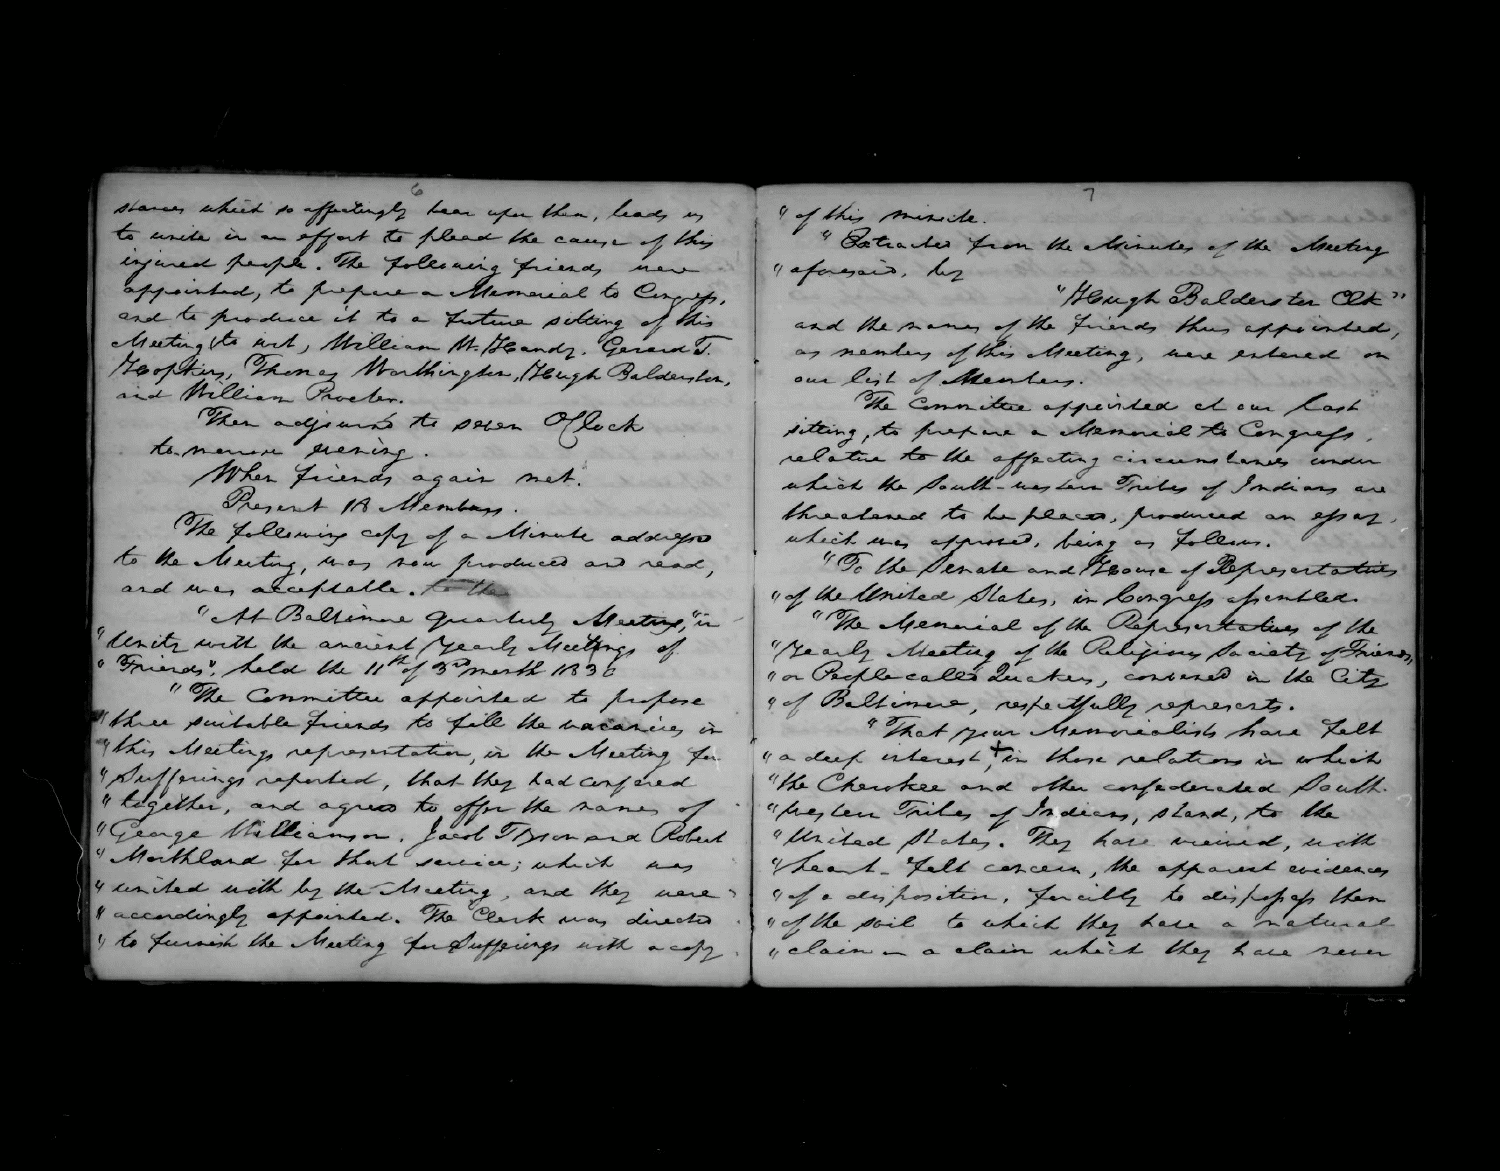 6
stances which so affectingly bear upon them, leads us
to unite in an effort to plead the cause of this
injured people. The following friends were
appointed, to prepare a Memorial to Congress,
and to produce it to a future sitting of this
Meeting (to wit, William W. Handy, Gerard T.
Hopkins, Thomas Worthington, Hugh Balderston,
and William Procter.
Then adjourn'd to seven O'Clock
to-morrow evening.
When friends again met.
Present 18 Members.
The following copy of a Minute addressed
to the Meeting, was now produced and read,
and was acceptable.
"At Baltimore Quarterly Meeting, "in
"Unity with the ancient Yearly Meeting of
"Friends", held the 11th of 3rd month 183
"The Committee appointed to propose
"three suitable friends to fill the vacancies in
"this Meetings representation, in the Meeting for
"Sufferings reported, that they had confered
"together, and agreed to offer the names of
"George Williamson, Jacob Tyson and Robert
"Morthland for that service; which was
"united with by the Meeting, and they were
"accordingly appointed. The Clerk was directed
"to furnish the Meeting for Sufferings with a copy
7
"of this minute.
"Extracted from the Minutes of the Meeting
"aforesaid, by
"Hugh Balderston Clk"
and the names of the friends thus appointed,
as members of this Meeting, were entered on
our list of Members.
The Committee appointed at our last
sitting, to prepare a Memorial to Congress,
relative to the affecting circumstances under
which the South-western Tribes of Indians are
threatened to be placed, produced an essay,
which was approved, being as follows.
"To the Senate and House of Representatives
"of the United States, in Congress assembled.
"The Memorial of the Representatives of the
"Yearly Meeting of the Religious Society of Friends,
"or People called Quakers, convened in the City
"of Baltimore, respectfully represents.
"That your Memorialists have felt
"a deep interest, in those relations in which
"the Cherokee and other confederated South-
"western Tribes of Indians, stand, to the
"United States. They have viewed, with
"heart-felt concern, the apparent evidences
"of a disposition, forcibly to dispossess them
"of the soil to which they have a natural
"claim – a claim which they have never